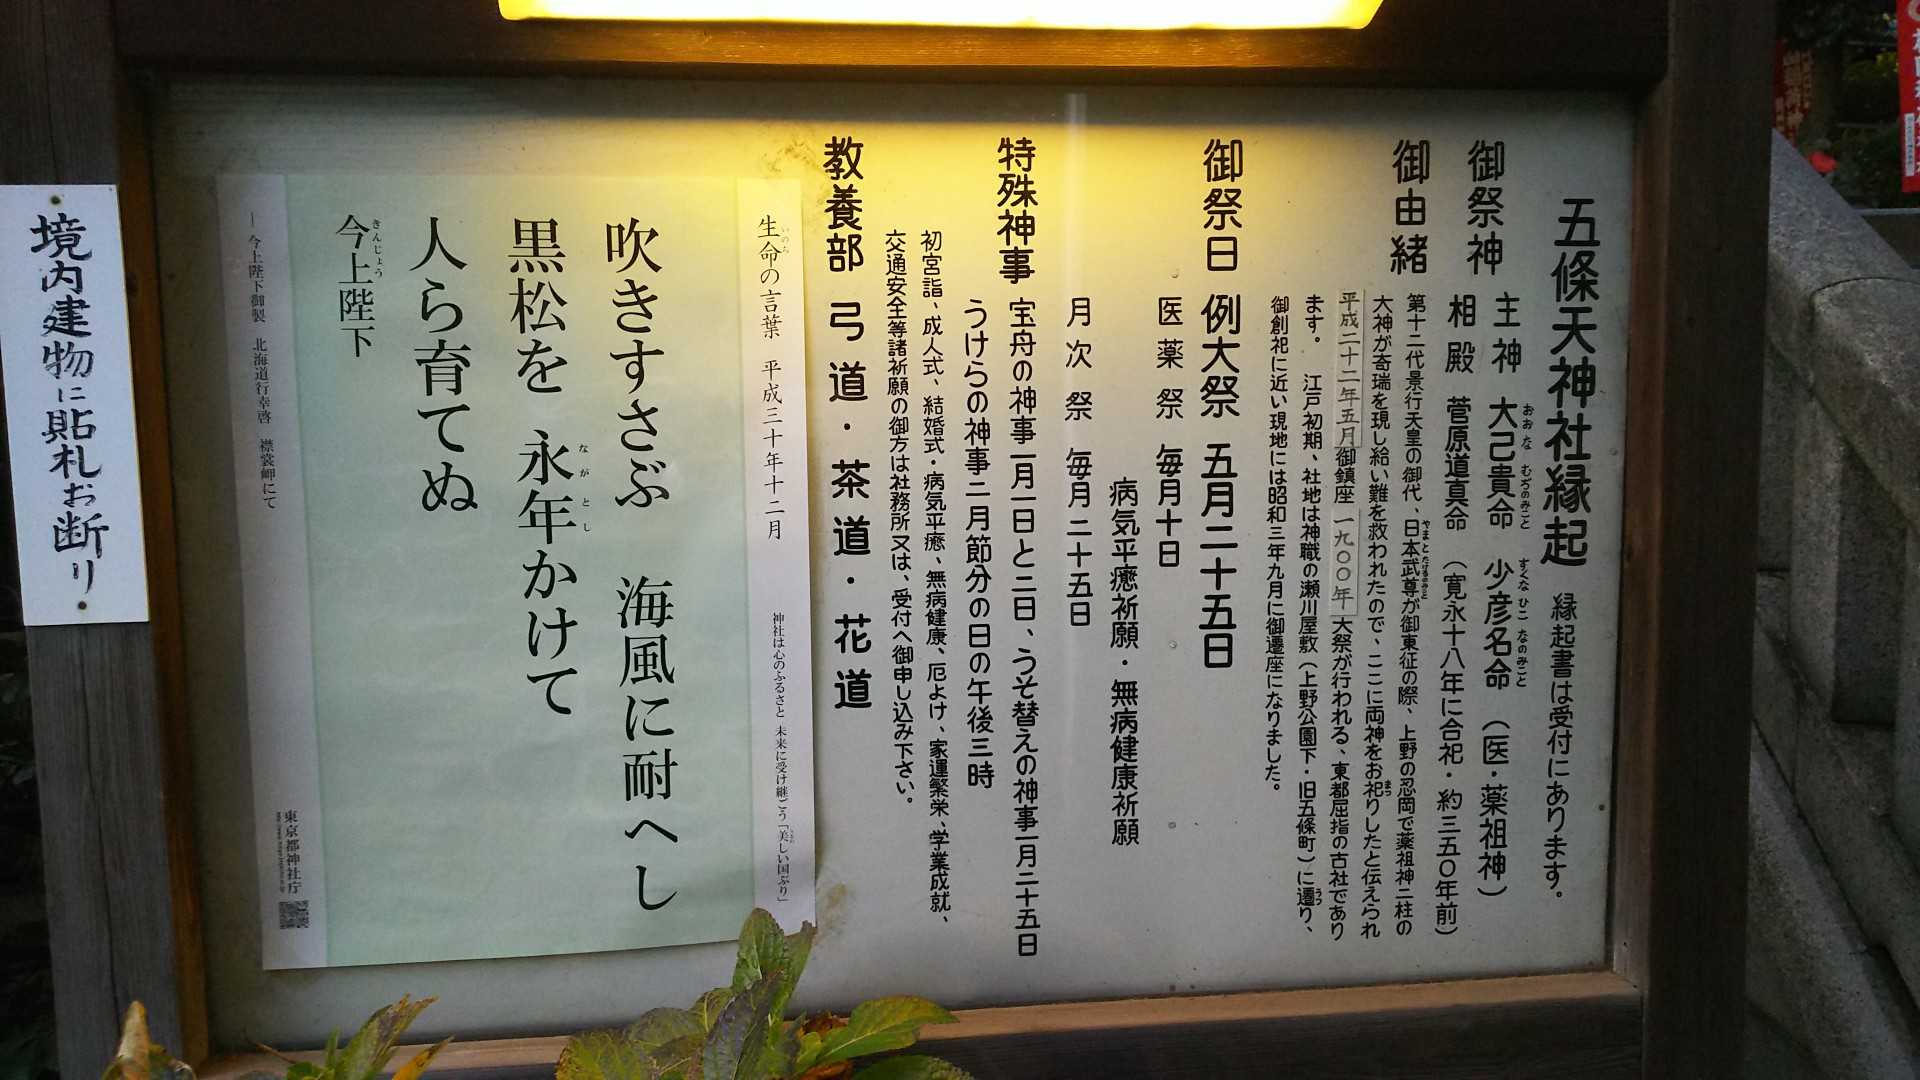 五條天神社縁起 縁起書は受付にあります。
御祭神 主神 大己貴命 少彦名命 (医・薬祖神)
おおな むぢのみこと すくなひこ なのみこと
相殿 菅原道真命 (寛永十八年に合祀・約三五〇年前)
御由緒 第十二代景行天皇の御代、日本武尊が御東征の際、上野の忍岡で薬祖神二柱の
やまとたけるのみこと
大神が奇瑞を現し給い難を救われたので、ここに両神をお祀りしたと伝えられ
まつ
平成二十二年五月御鎮座一九〇〇年大祭が行われる、東都屈指の古社であり
ます。 江戸初期、社地は神職の瀬川屋敷(上野公園下・旧五條町)に遷り、
うつ
御創祀に近い現地には昭和三年九月に御遷座になりました。
御祭日 例大祭 五月二十五日
医薬祭 毎月十日
病気平癒祈願・無病健康祈願
月次祭 毎月二十五日
特殊神事 宝舟の神事一月一日と二日、うそ替えの神事一月二十五日
うけらの神事二月節分の日の午後三時
初宮詣、成人式、結婚式・病気平癒、無病健康、厄よけ、家運繁栄、学業成就、
交通安全等諸祈願の御方は社務所又は、受付へ御申し込み下さい。
教養部 弓道・茶道・花道
生命の言葉 平成三十年十二月 神社は心のふるさと 未来に受け継ごう「美しい国ぶり」
いのち
吹きすさぶ 海風に耐へし
黒松を 永年かけて
ながとし
人ら育てぬ
今上陛下
きんじょう
― 今上陛下御製 北海道行幸啓 襟裳岬にて
東京都神社庁
境内建物に貼札お断り